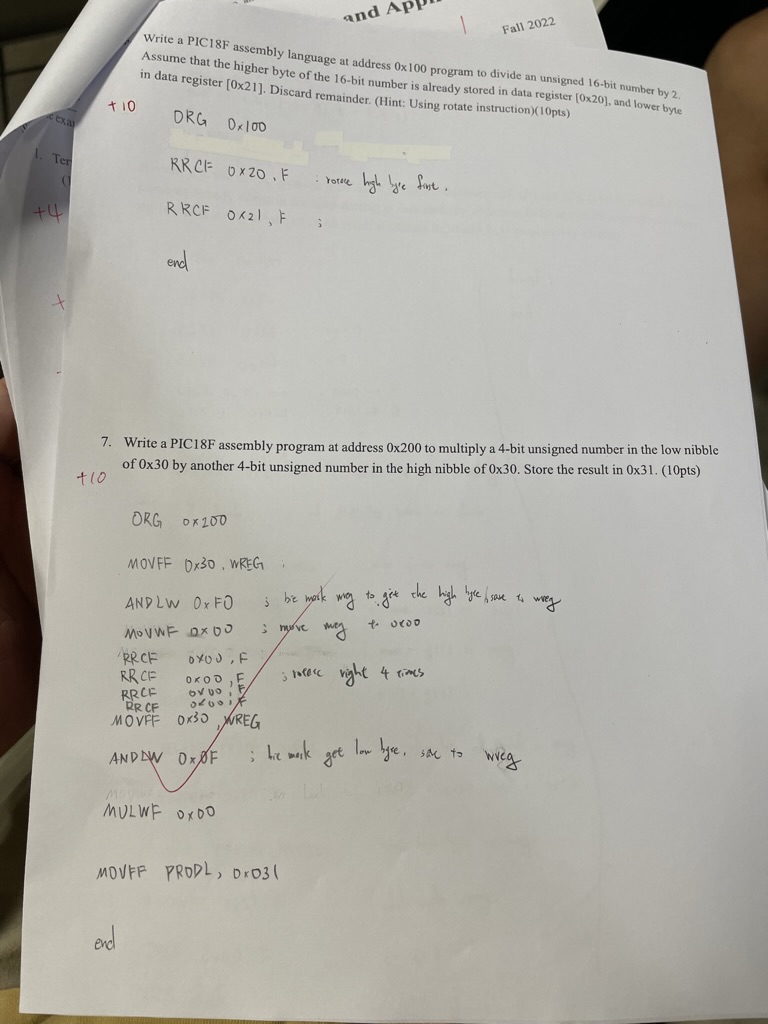 and App
Fall 2022
Write a PIC18F assembly language at address 0x100 program to divide an unsigned 16-bit number by 2.
Assume that the higher byte of the 16-bit number is already stored in data register [0x20], and lower byte
in data register [0x21]. Discard remainder. (Hint: Using rotate instruction)(10pts)
+10
ORG 0x100
1. Ter
RRCF 0x20, F ; rotate high byte first.
+4
RRCF 0x21, F ;
end
+
7. Write a PIC18F assembly program at address 0x200 to multiply a 4-bit unsigned number in the low nibble
of 0x30 by another 4-bit unsigned number in the high nibble of 0x30. Store the result in 0x31. (10pts)
+10
ORG 0x200
MOVFF 0x30, WREG ;
ANDLW 0xF0 ; bit mask wreg to get the high byte, save to wreg
MOVWF 0x00 ; move wreg to 0x00
RRCF 0x00, F
RRCF 0x00, F ; rotate right 4 times
RRCF 0x00, F
RRCF 0x00, F
MOVFF 0x30, WREG
ANDLW 0x0F ; bit mask get low byte, save to wreg
MULWF 0x00
MOVFF PRODL, 0x031
end